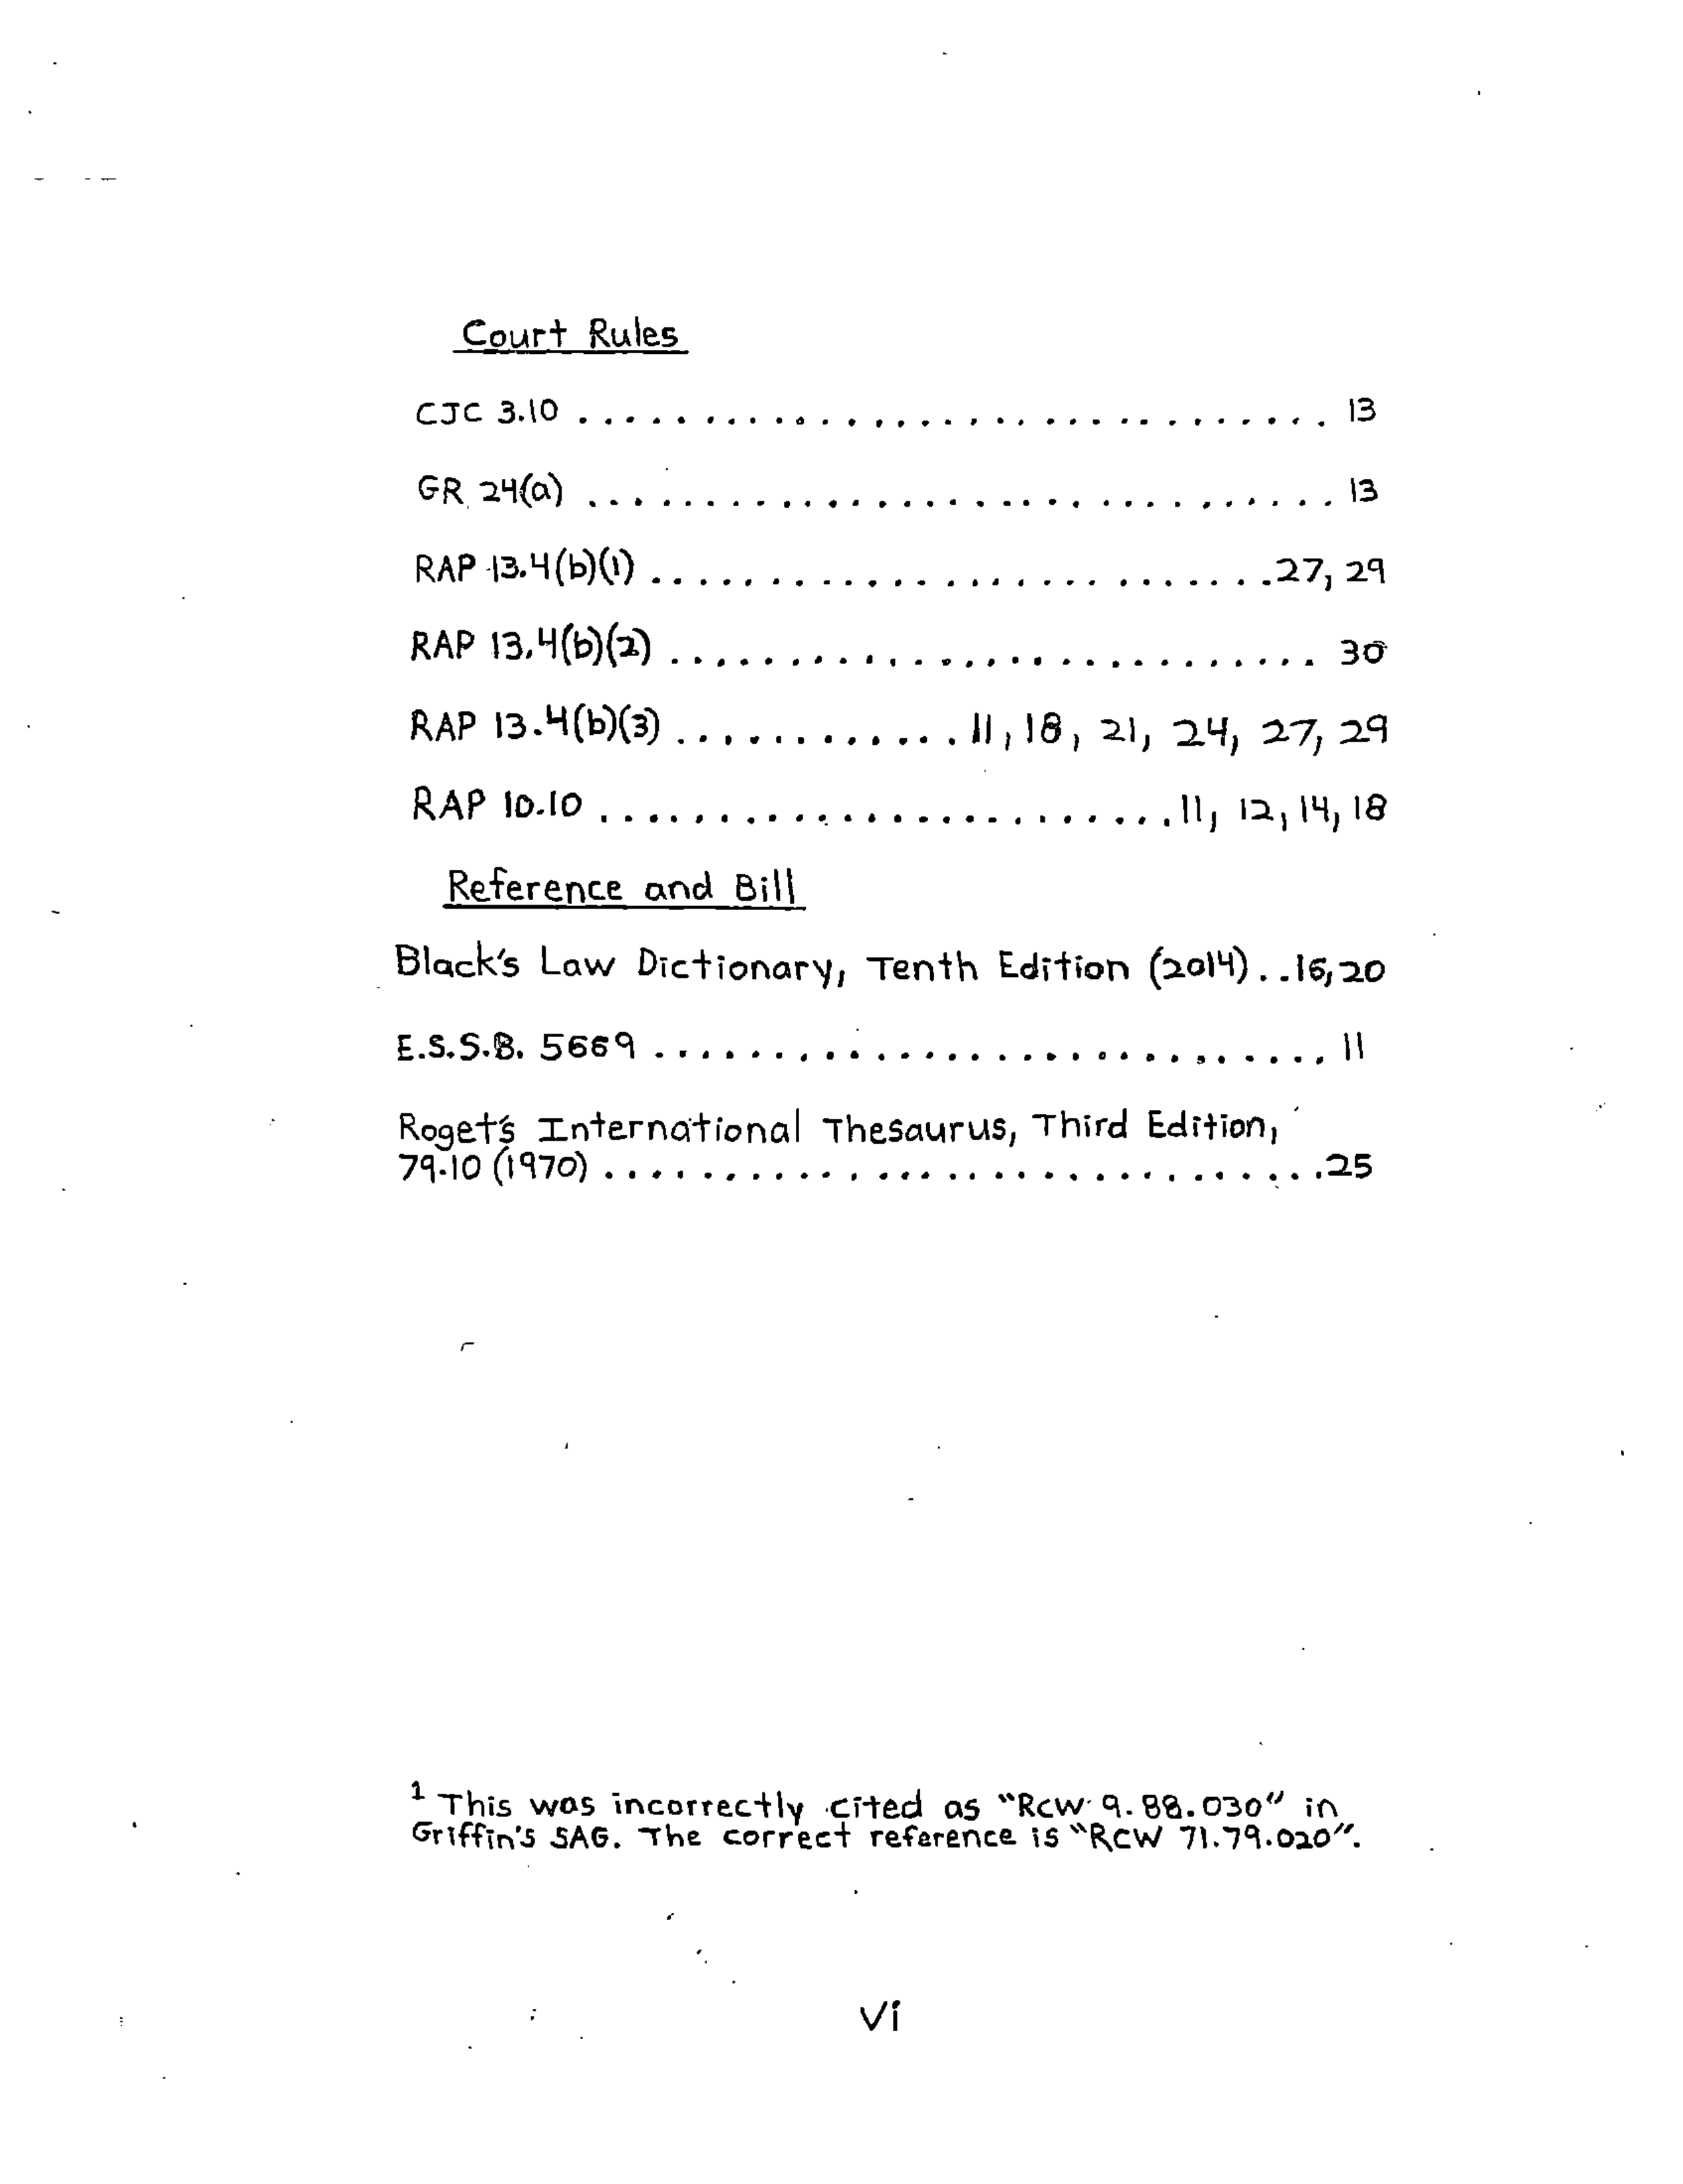 Court Rules
CJC 3.10 ............................... 13
GR 24(a) ............................... 13
RAP 13.4(b)(1) ..........................27, 29
RAP 13.4(b)(2) ........................... 30
RAP 13.4(b)(3) ............11, 18, 21, 24, 27, 29
RAP 10.10 ........................11, 12, 14, 18
Reference and Bill
Black's Law Dictionary, Tenth Edition (2014)...16, 20
E.S.S.B. 5669 ............................ 11
Roget's International Thesaurus, Third Edition,
79.10 (1970) ..............................25
1 This was incorrectly cited as "RCW 9.88.030" in
Griffin's SAG. The correct reference is "RCW 71.79.020".
vi